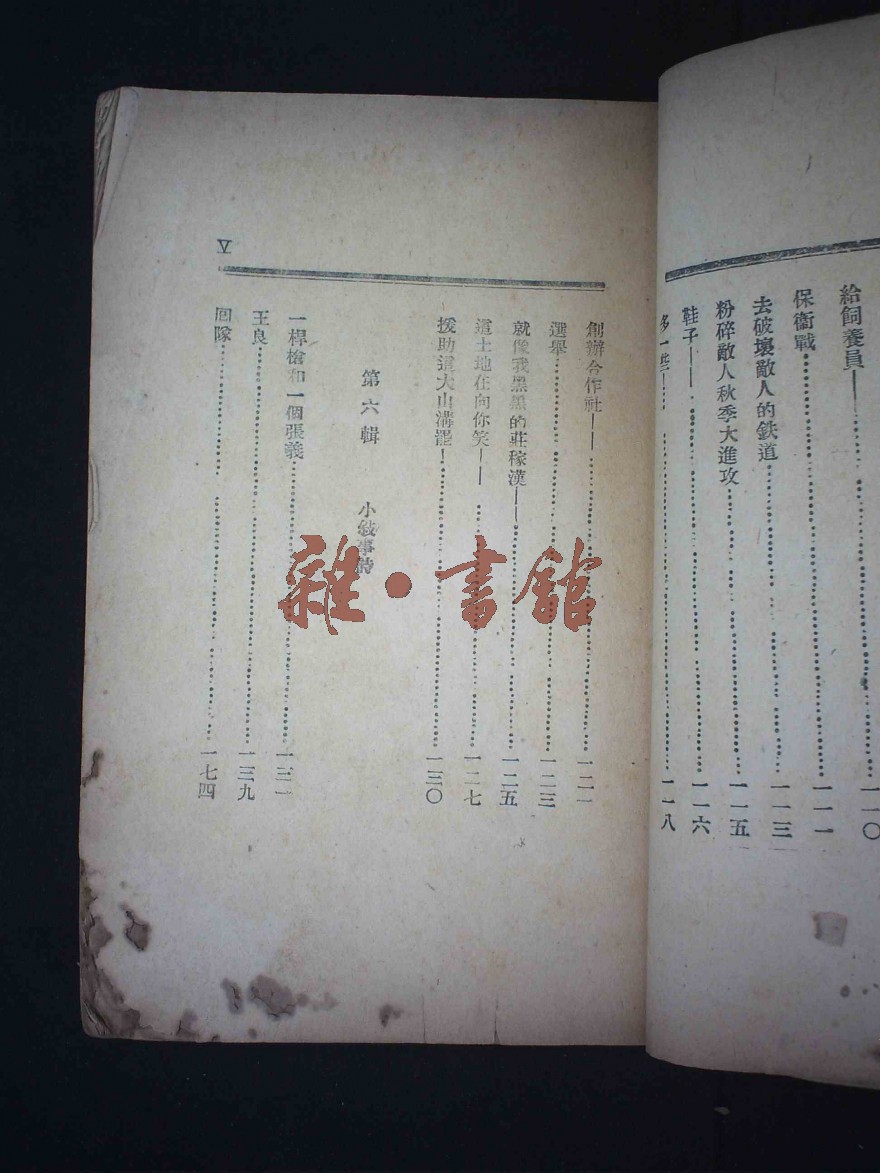 給飼養員——一一〇
保衞戰……一一一
去破壞敵人的鉄道……一一三
粉碎敵人秋季大進攻……一一五
鞋子——……一一六
多一些……一一八
V
創辦合作社——……一二一
選舉……一二三
就像我黑黑的莊稼漢——……一二五
這土地在向你笑——……一二七
援助這大山溝罷！……一三〇
第六輯 小敍事詩
一桿槍和一個張義……一三一
王良……一三九
囘隊……一七四
雜·書館